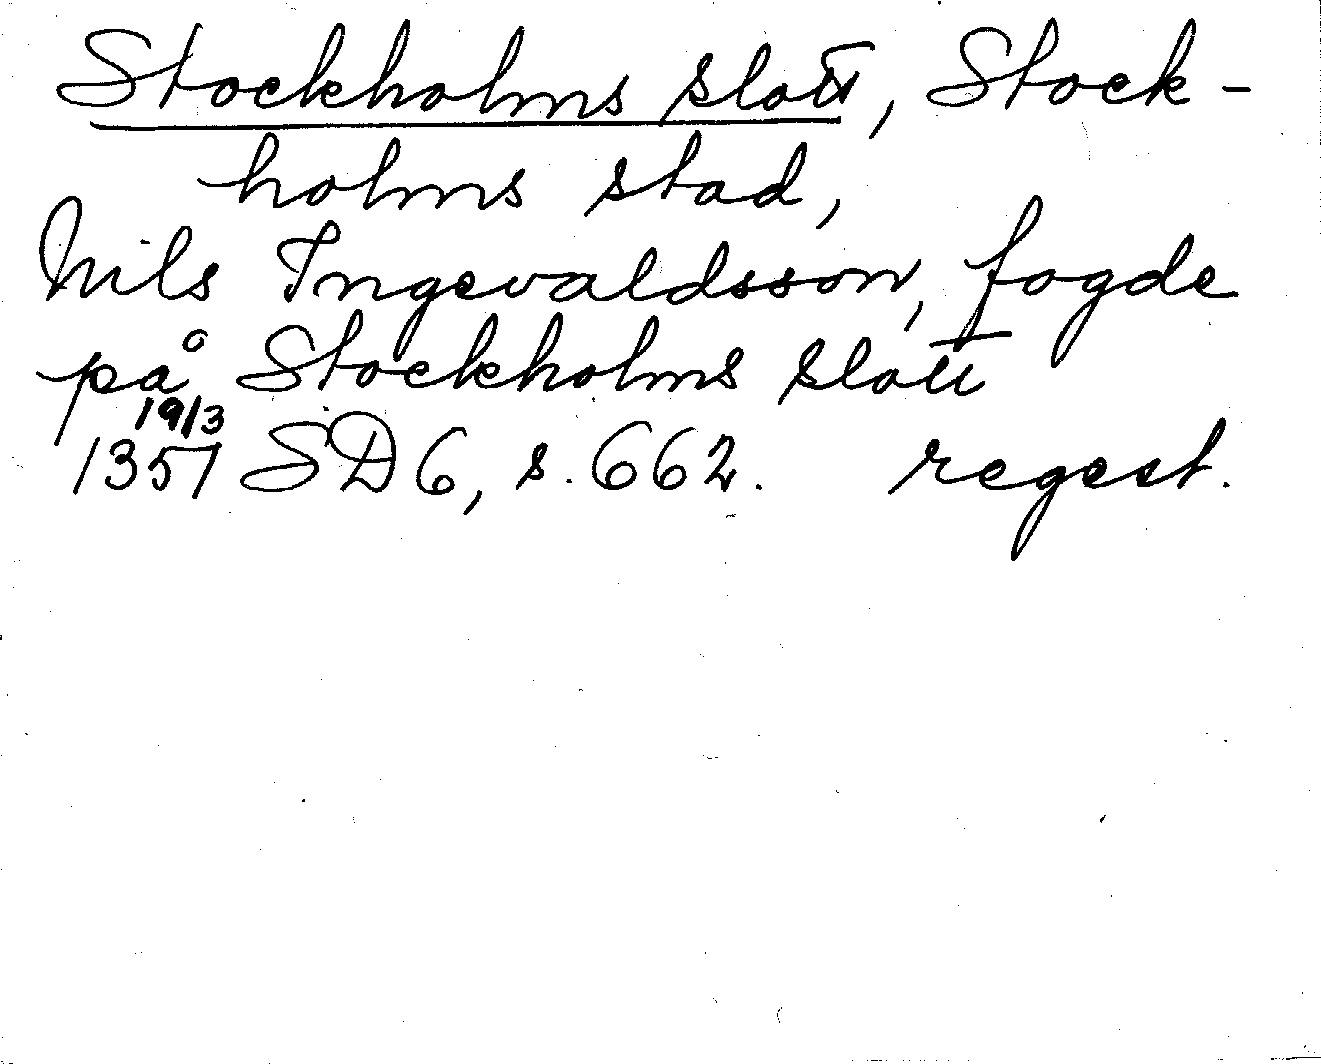 Stockholms slott, Stock-
holms stad,
Nils Ingevaldsson, fogde
på Stockholms slott
19/3
1357 SD 6, s. 662. regest.